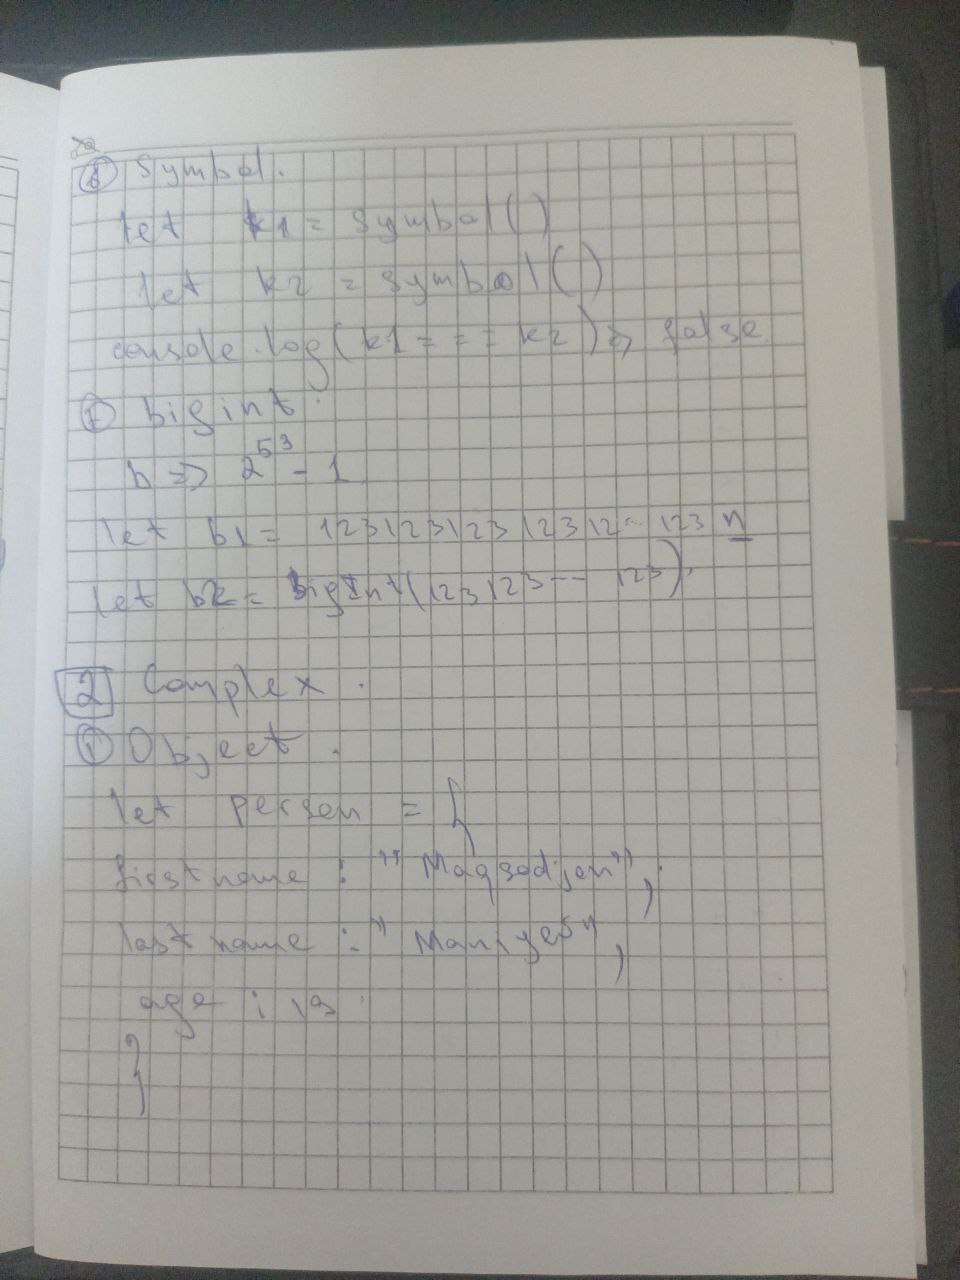 ⑥ Symbol.
let k1 = Symbol()
let k2 = Symbol()
console.log(k1 === k2) => false
⑦ bigint.
b => 2⁵³ - 1
let b1 = 12312312312312... 123 n
let b2 = BigInt(123123--- 123);
2 Complex.
① Object.
let person = {
firstname : "Maqsodjon",
lastname : "
age : 19
}